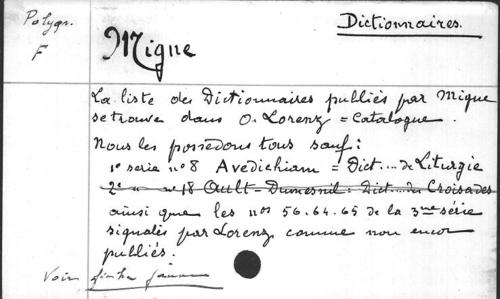 Polygr.
F
Dictionnaires.
Migne
La liste des Dictionnaires publiés par Migne
se trouve dans O. Lorenz = Catalogue.
Nous les possédons tous sauf:
1e série no 8 Avedichiam = Dict... de Liturgie
2e " no 18 Ault-Dumesnil: Dict... des Croisades
ainsi que les nos 56. 64. 65 de la 3me série
signalés par Lorenz comme non encor
publiés.
Voir fiche